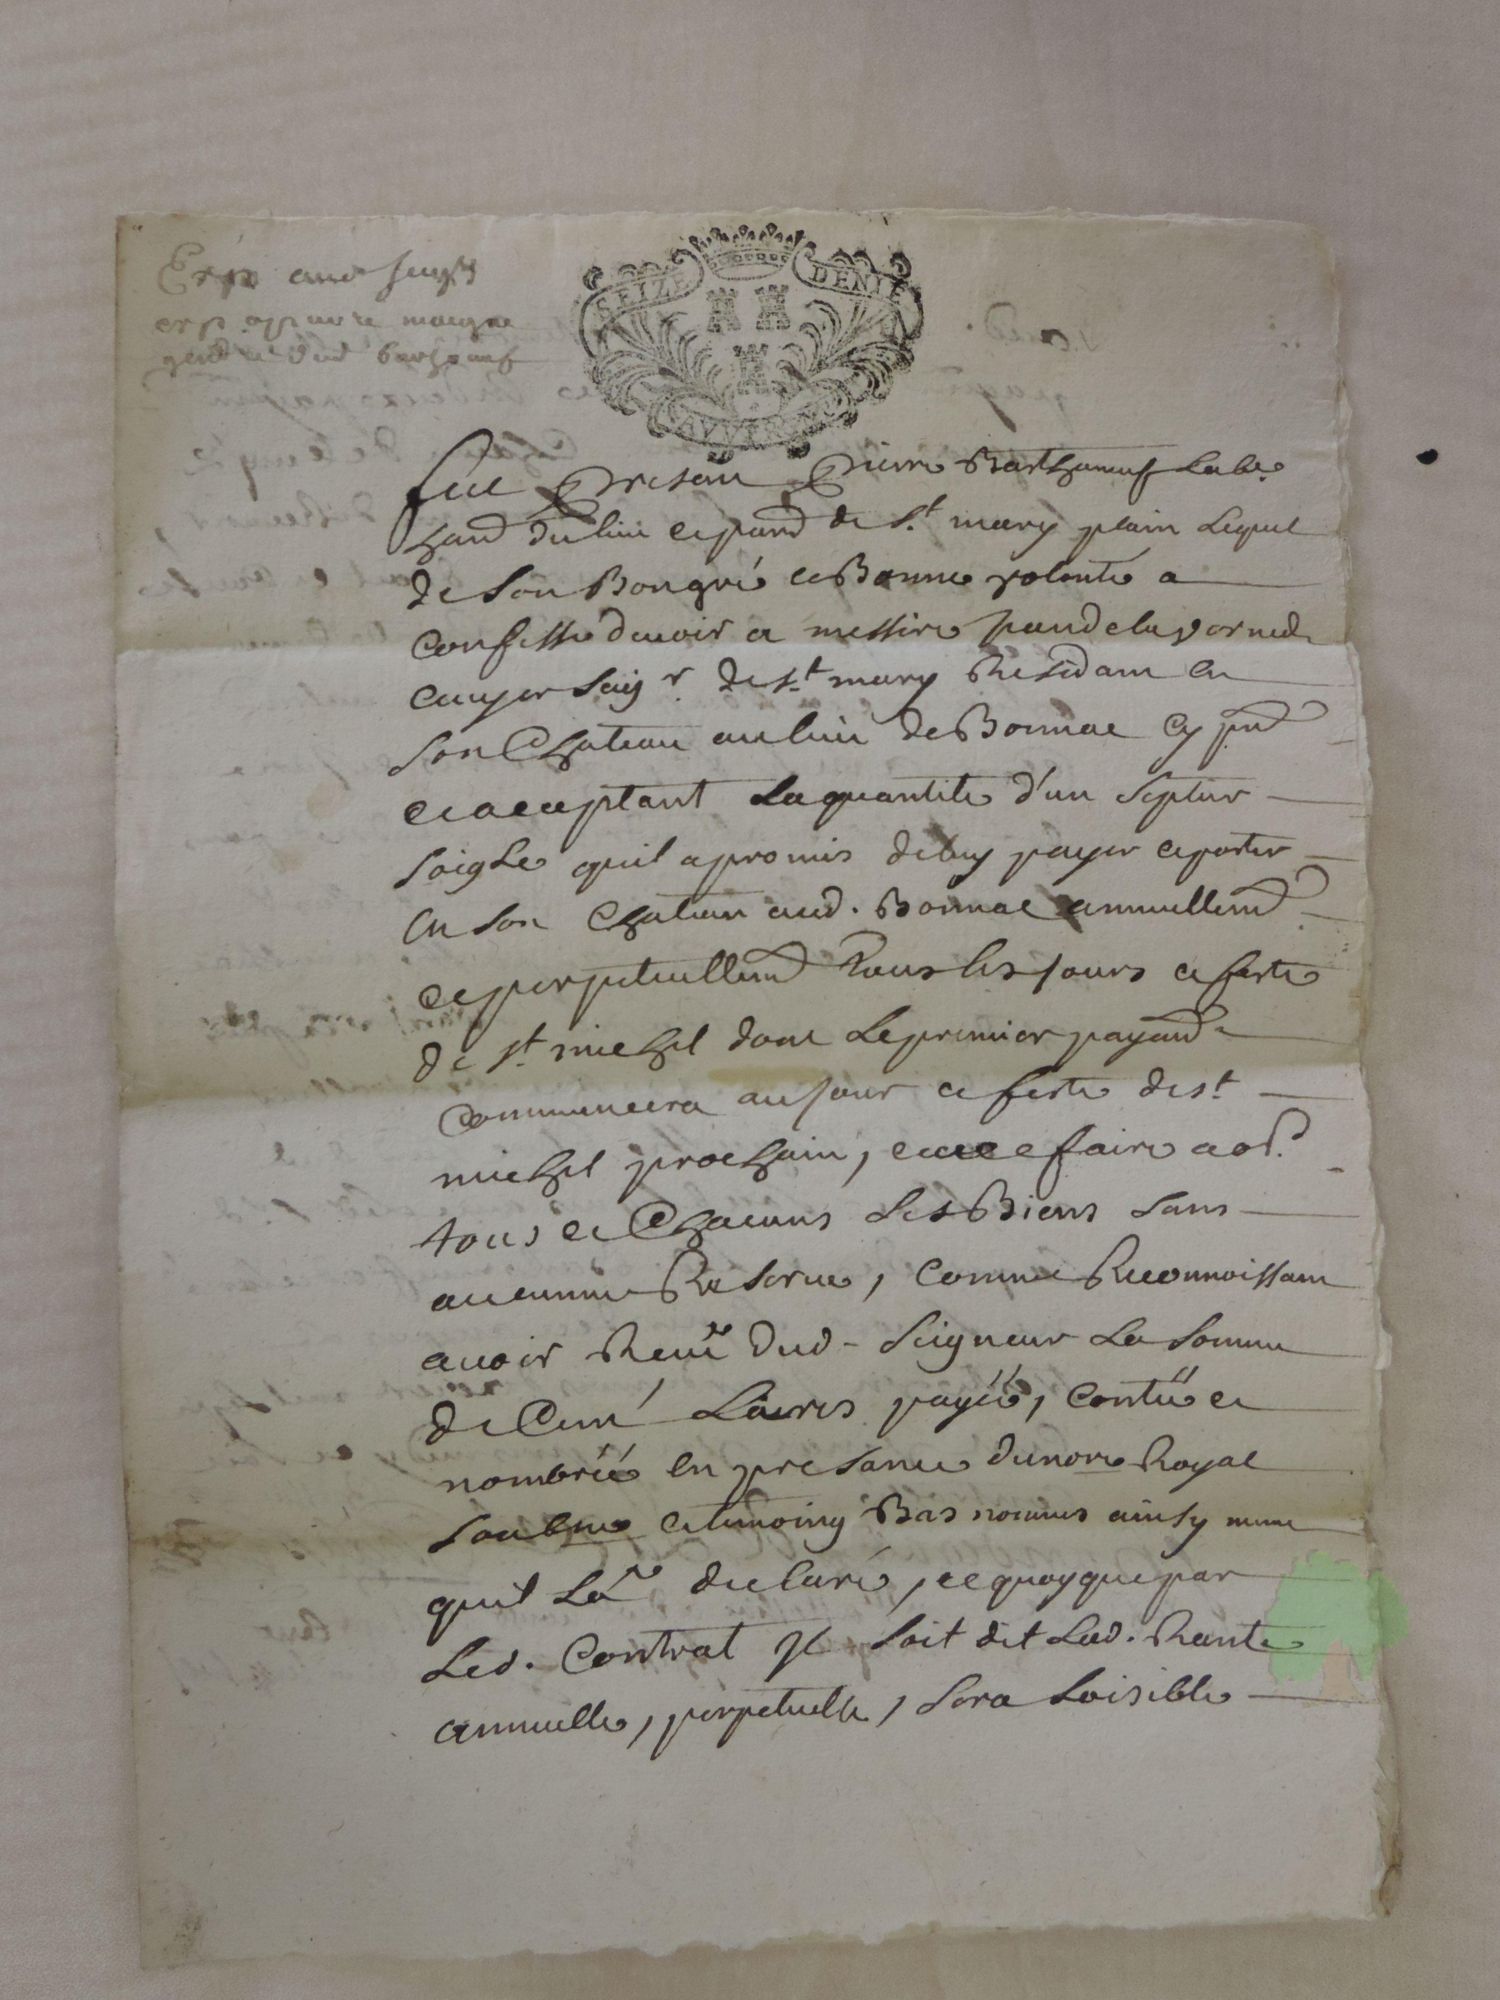 SEIZE DENIE
Exp aud seig.r
exp.
AVVERGNE
fut presant Pierre Barthomeuf Labo
dulieu et par.d de S.t mary plain Lequel
de Son Bongré et Bonne volonté a
confessé devoir a messire
ecuyer Seig.r de S.t mary Residant en
Son Chateau au lieu de Bonnac cy pnt
et acceptant La quantite d'un Septier
Soigle quil a promis de luy payer et porter
en Son Chateau aud. Bonnac annuellemt
et perpetuellemt tous les jours et feste
de S.t michel dont Le premier payemt
commencera au jour et feste de S.t
michel prochain, et ce faire a ob.é
tous et Chacuns Ses Biens Sans
aucune Reserve, comme Reconnoissant
avoir Receu dud. Seigneur La Somme
de Cent Livres payée, contée et
nombrée en presance du no.re Royal
Soub.né et temoins Bas nommes ainsy mme
quil La declaré, et quoyque par
Led. Contrat Il Soit dit Lad. Rente
annuelle, perpetuelle, Sera Loisible